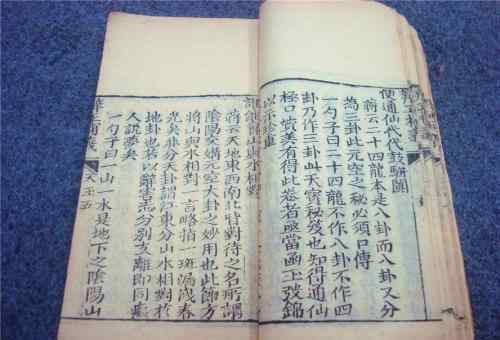 使通仙代代鼓駢闐
蔣云二十四龍本是八卦而八卦又分
為三卦此元空之秘必須口傳
一勺子曰二十四龍不作八卦不作四
卦乃作三卦此天寶秘笈也知得通仙
極口贊美有得此卷者亟當函上錦
以示珍重
山與水相對
蔣云天地東西南北皆對待之名所謂
陰陽交媾元空大卦之妙用也此節方
將山與水相對一言略指一斑漏洩春
光矣非分天卦謂東分山水相對於
地卦也若以辭害志分別支離即同癡
人說夢矣
一勺子曰一山一水是地下之陰陽山